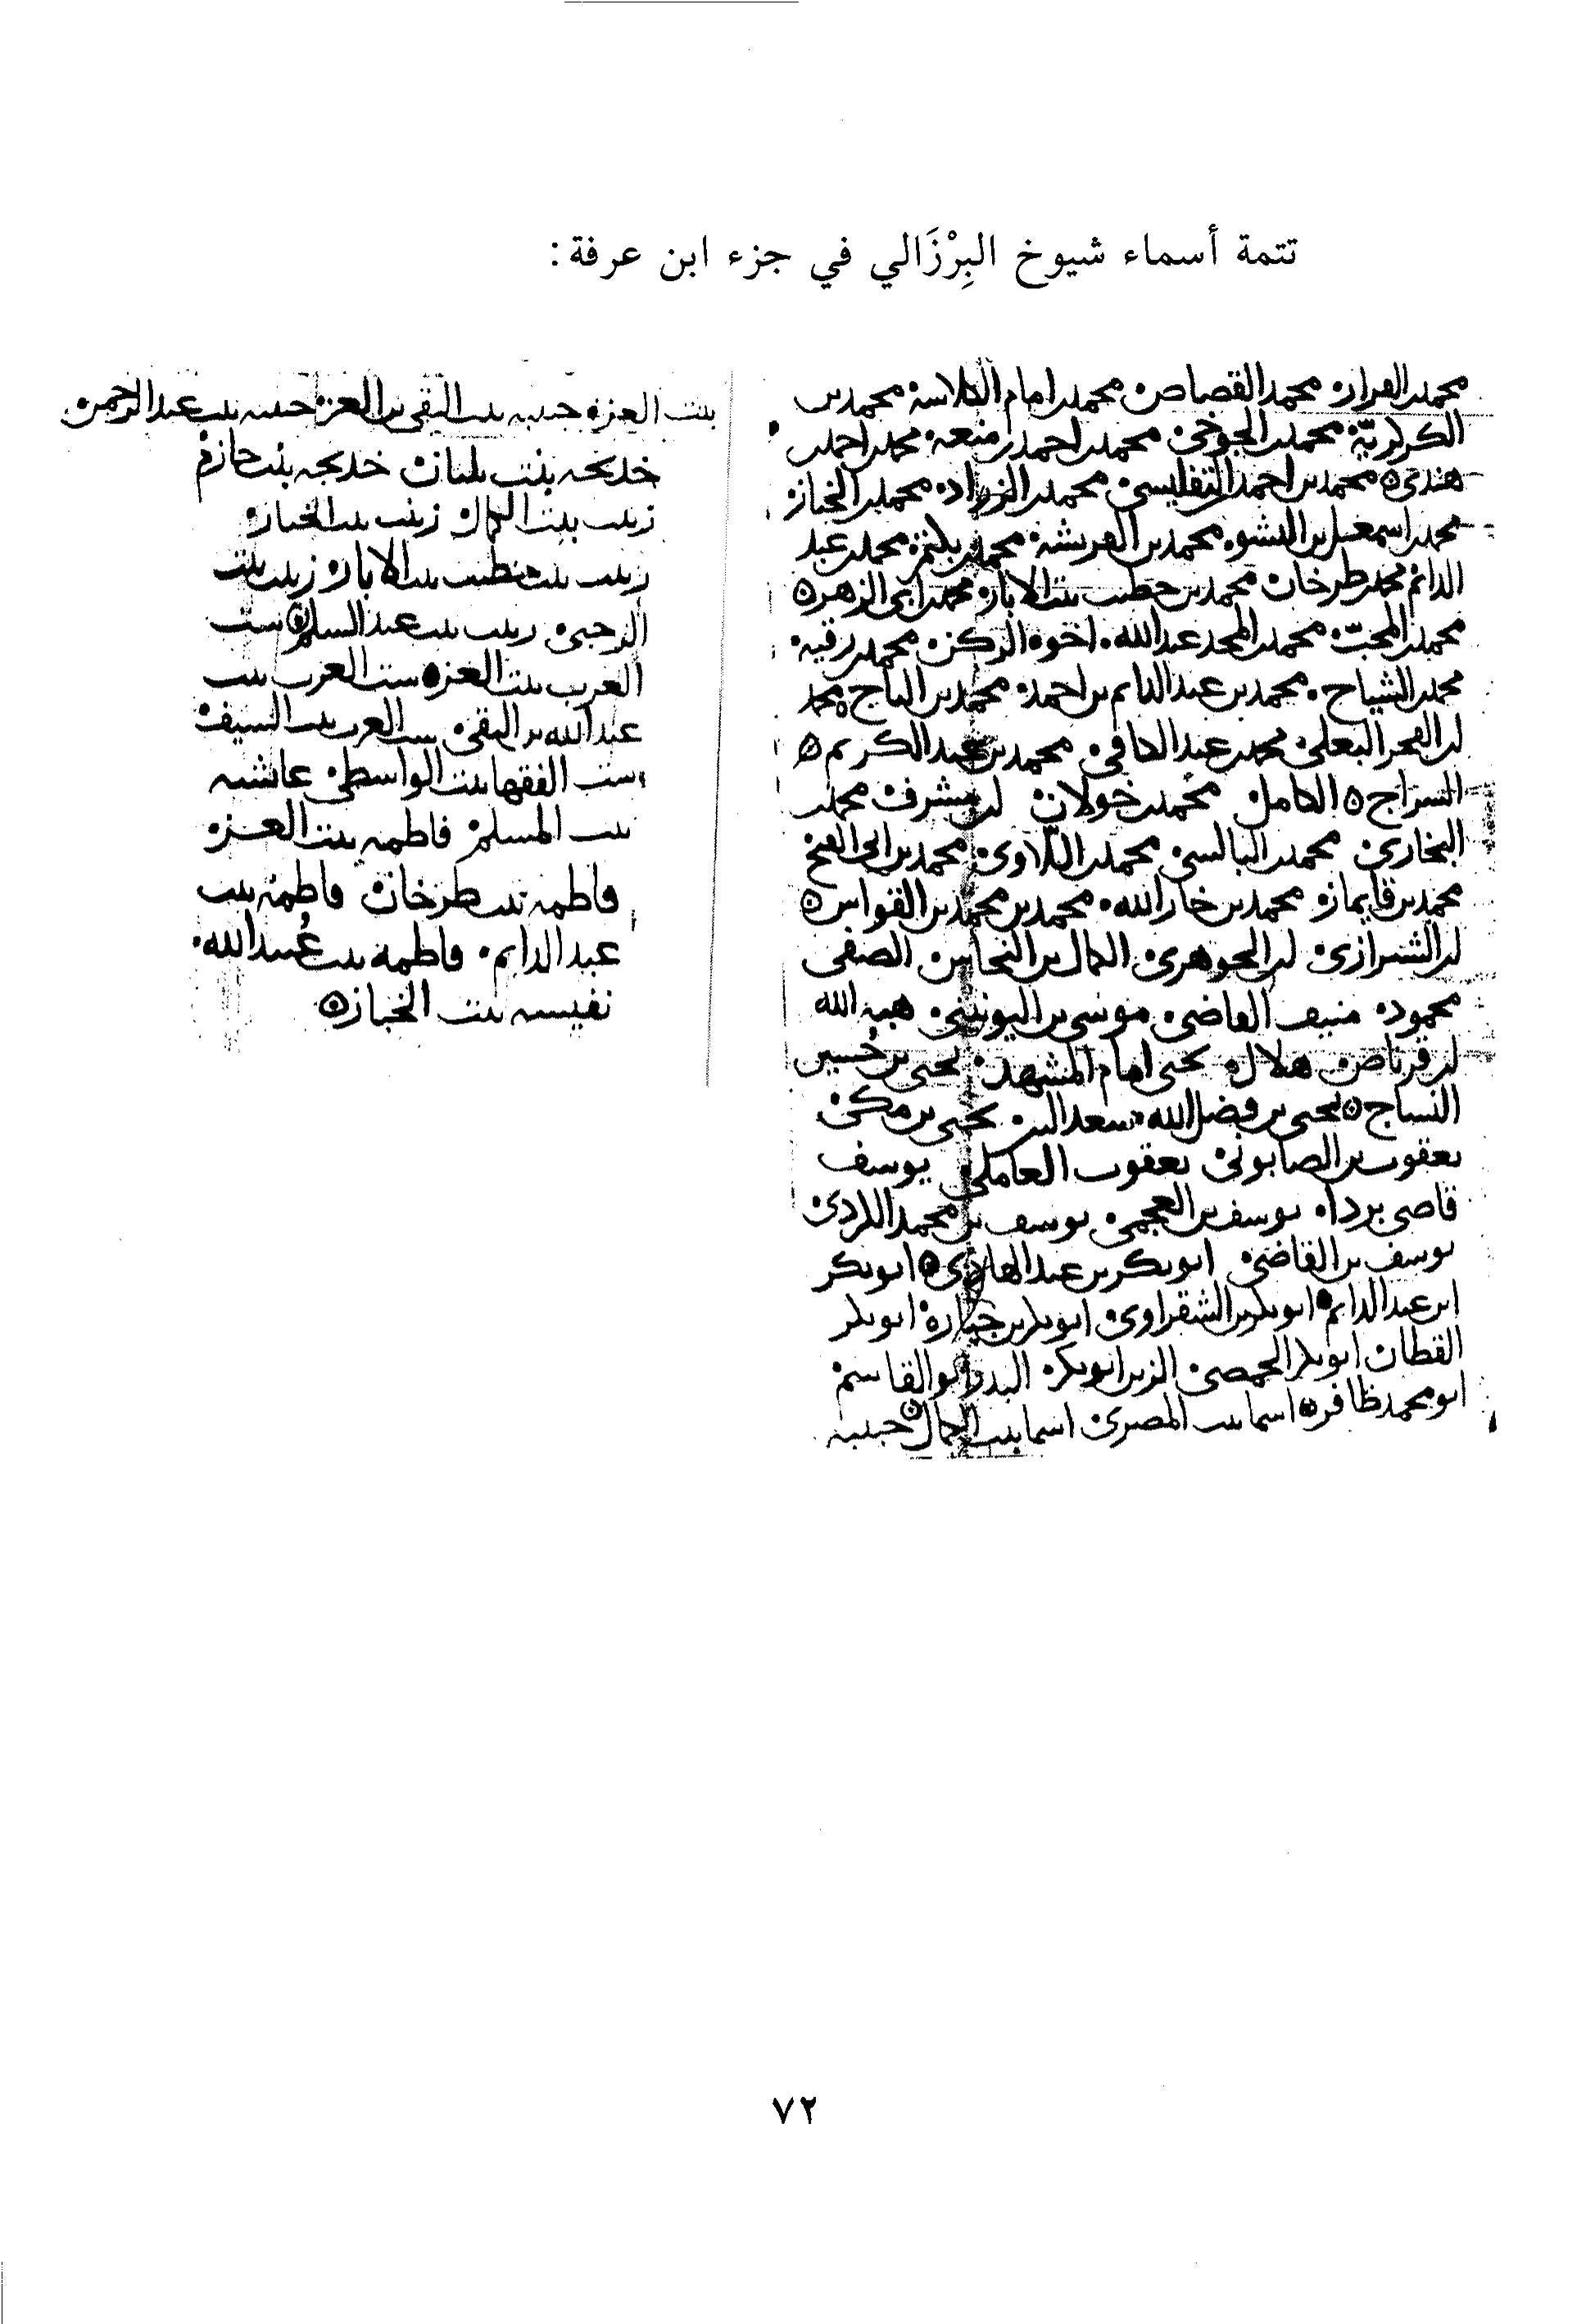 تتمة أسماء شيوخ البِرْزَالي في جزء ابن عرفة :
محمد بن القزاز محمد القصاص محمد بن امام الكلاسة محمد بن
محمد بن الجوخي محمد بن احمد بن منعه محمد بن احمد بن
هندي محمد بن احمد التفليسي محمد بن الزراد محمد بن الخباز
محمد بن اسمعيل بن النشو محمد بن محمد بن بلتمر محمد بن عبد
الدائم محمد بن طرخان محمد بن خطيب بيت الابار محمد بن ابي الزهر
محمد بن المحبّ محمد بن المجد عبد الله اخوه الركن محمد بن رقيه
محمد بن الشياح محمد بن عبد الدايم بن احمد محمد بن التاج محمد
بن الفخر البعلي محمد بن عبد الكافي محمد بن عبد الكريم
السراج الكامل محمد بن خولان بن مشرف محمد بن
البخاري محمد بن البالسي محمد محمد بن ابي الفتح
محمد بن قايماز محمد بن محمد بن محمد بن القواس
بن الشيرازي بن الجوهري الكمال بن النحاس الصفي
محمود منيف القاضي موسى بن اليونيني هبه الله
بن قرناص هلال يحيى امام المشهد يحيى بن حُسين
النساج يحيى بن فضل الله سعد الدين يحيى بن مكي
يعقوب بن الصابوني يعقوب العاملي يوسف
قاضي يوسف بن العجمي يوسف بن محمد الكردي
يوسف بن القاضي ابو بكر بن عبد الهادي ابو بكر
ابن عبد الدايم ابو بكر بن الشقراوي ابو بكر بن جباره ابو بكر
القطان ابو بكر الحمصي الزين ابو بكر البدر ابو القاسم
ابو محمد ظافر اسما بنت المصري اسما بنت الكمال حبيبه
بنت العز حبيبه بنت التقي بن العز حبيبه بنت عبد الرحمن
خديجه بنت بلبان خديجه بنت حازم
زينب بنت الكمال زينب بنت الخباز
زينب بنت خطيب بيت الابار زينب بنت
الرحبي زينب بنت عبد السلم ست
العرب بنت العز ست العرب بنت
عبد الله بن التقي ست العرب بنت السيف
ست الفقها بنت الواسطي عائشه
بنت المسلم فاطمه بنت العز
فاطمه بنت طرخان فاطمه بنت
عبد الدايم فاطمه بنت عُبيد الله
نفيسه بنت الخباز
٧٢